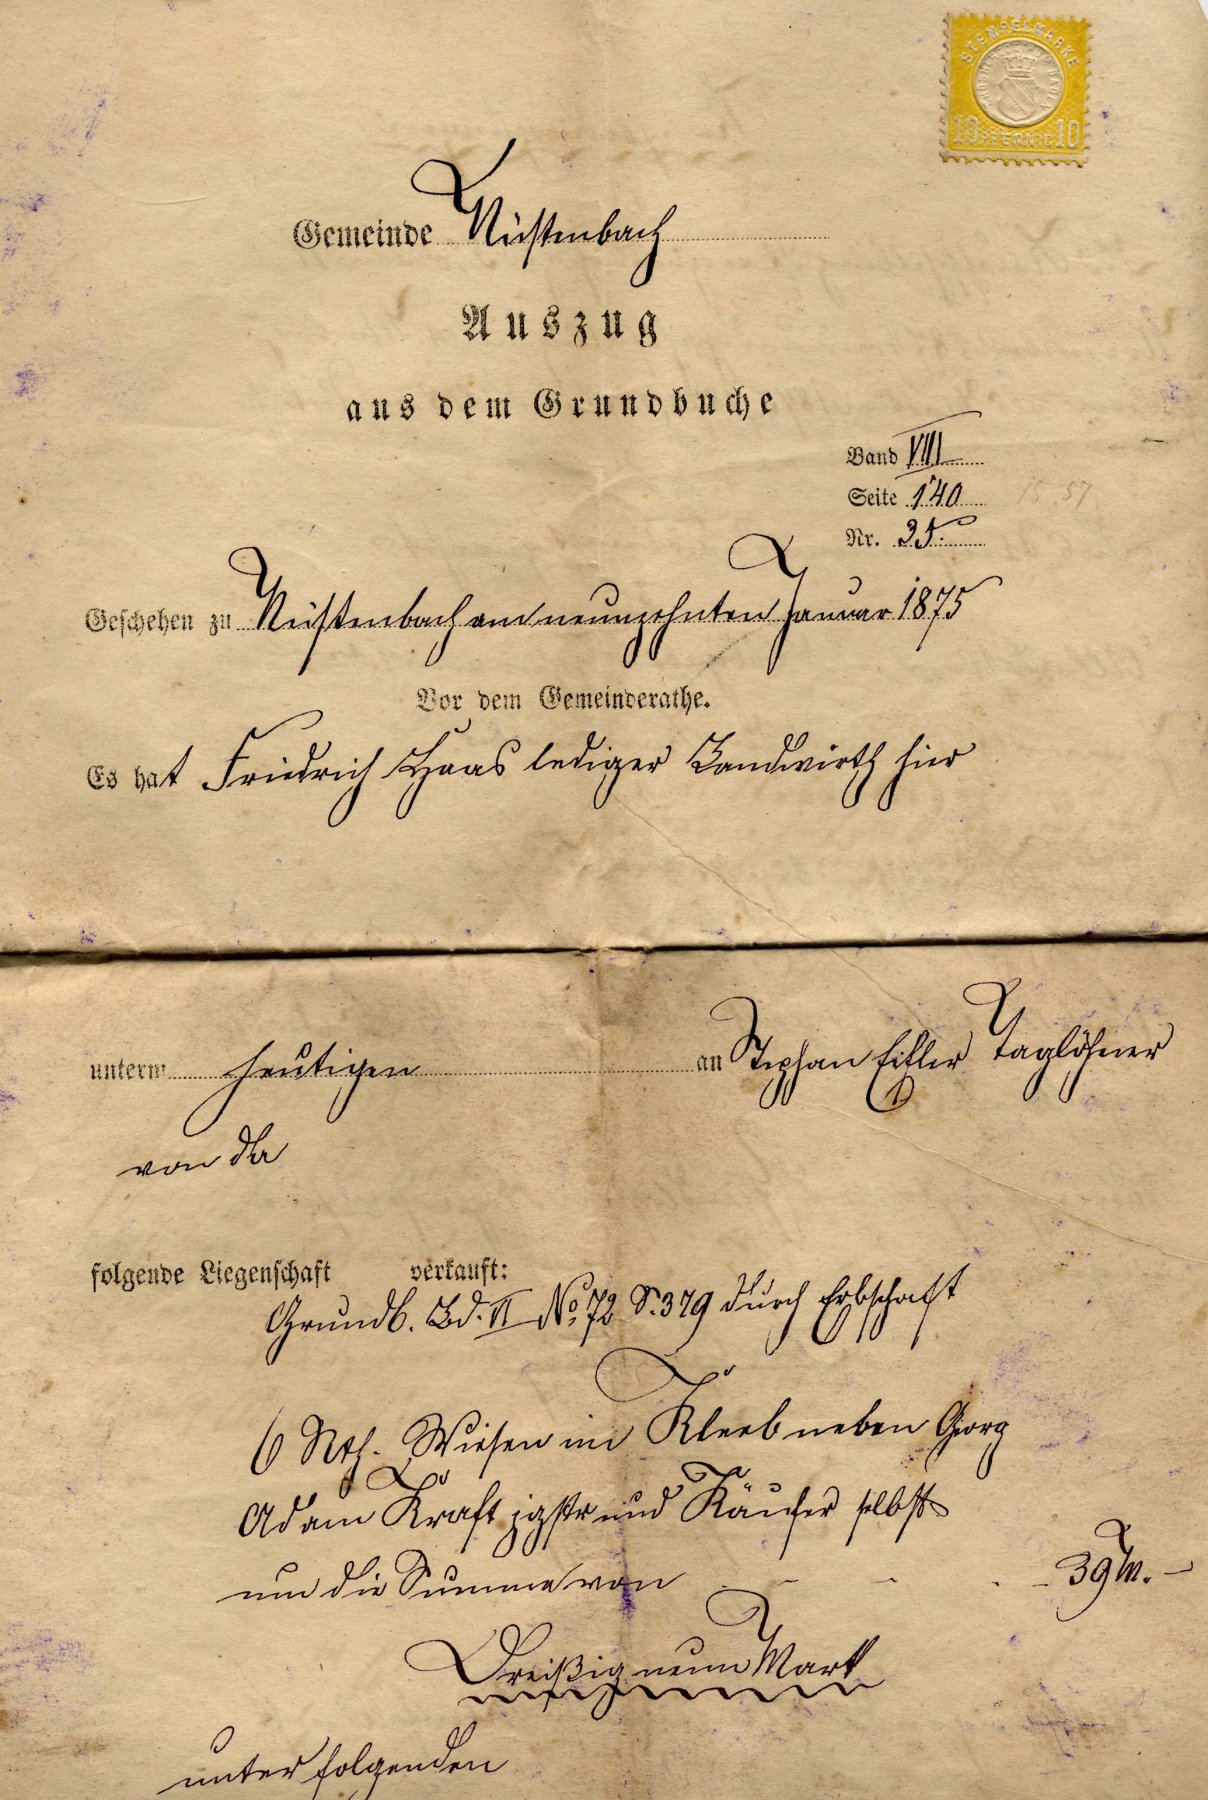 STEMPELMARKE
GROSHERZOGTUM BADEN
10 PFENNIG 10
Gemeinde Nüstenbach
Auszug
aus dem Grundbuche
Band VIII
Seite 140
Nr. 35.
Geschehen zu Nüstenbach am neunzehnten Januar 1875
Vor dem Gemeinderathe.
Es hat Friedrich Haas lediger Landwirth hier
unterm heutigen an Stephan Eisler Taglöhner
von da
folgende Liegenschaft verkauft:
Grundb. Bd. VI No 72 S. 379 durch Erbschaft
6 Rth. Wiesen im Kleeb neben Georg
Adam Kraft jgstr und Käufer selbst
um die Summe von - - - 39 M. -
Dreißig neun Mark
unter folgenden